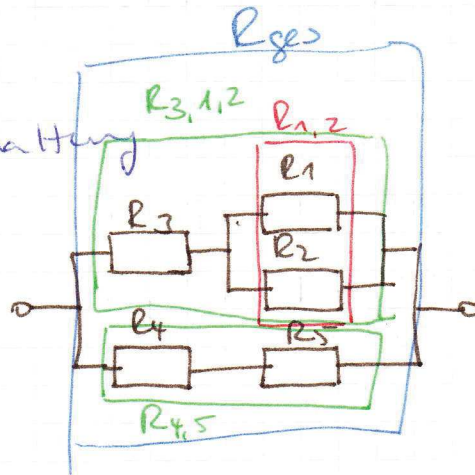 Rges
R3,1,2
R1,2
R1
R3
R2
R4
R5
R4,5